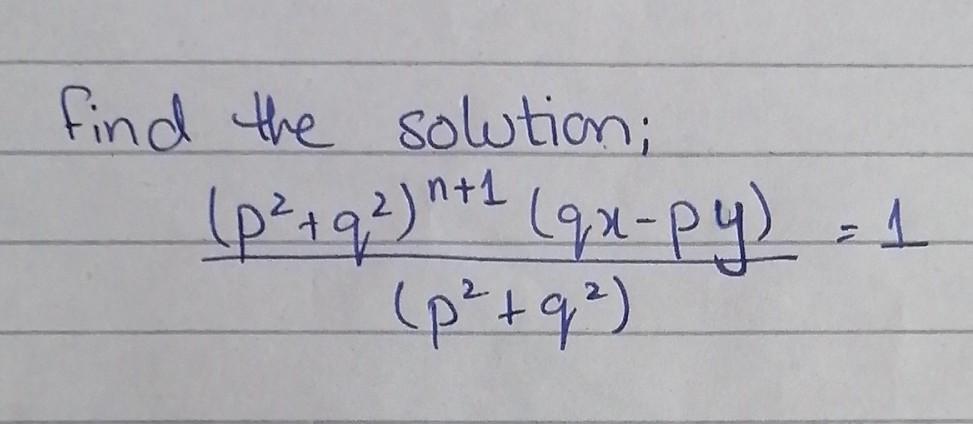 find the solution;
(p²+q²)ⁿ⁺¹ (qx-py)
= 1
(p²+q²)